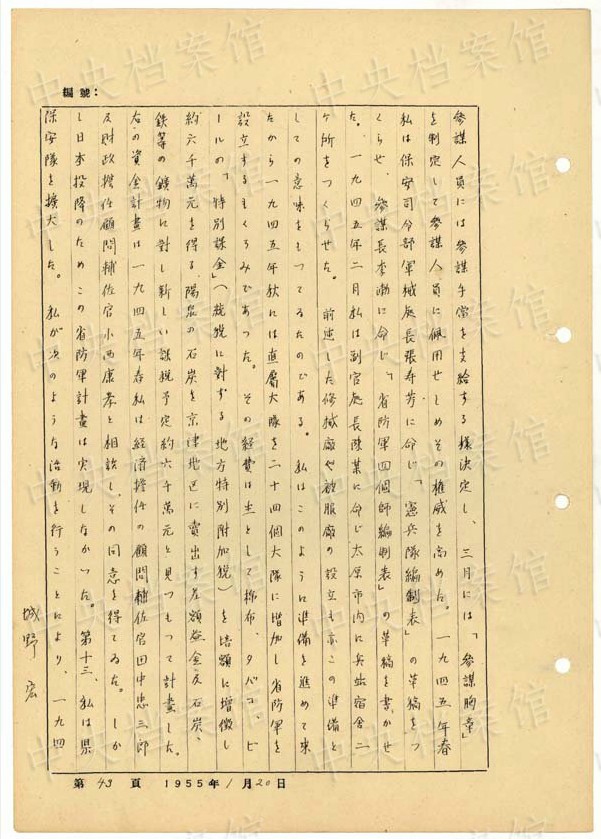 編號：
參謀人員には參謀手當を支給する様決定し、三月には「參謀胸章」
を制定して參謀人員に佩用せしめその権威を高めた。一九四五年春
私は保安司令部軍械処長張寿芳に命じ「憲兵隊編制表」の草稿をつ
くらせ、參謀長李渤に命じ「省防軍四個師編制表」の草稿を書かせ
た。一九四五年二月私は副官処長陳某に命じ太原市内に兵站宿舎二
ヶ所をつくらせた。前述した修械廠や被服廠の設立も亦この準備と
しての意味をもつてゐたのである。私はこのように準備を進めて来
たから一九四五年秋には直屬大隊を二十四個大隊に増加し省防軍を
設立するもくろみであつた。その経費は主として棉布、タバコ、ビ
ールの「特別課金」（統税に対する地方特別附加税）を倍額に増徴し
約六千萬元を得る、陽泉の石炭を京津地区に賣出す差額益金及石炭、
鉄等の鑛物に対し新しい課税予定約六千萬元と見つもつて計畫した。
右の資金計畫は一九四五年春私は経済擔任の顧問輔佐官田中忠三郎
及財政擔任顧問輔佐官小西康孝と相談し、その同意を得てゐた。しか
し日本投降のためこの省防軍計畫は実現しなかつた。第十三、私は県
保安隊を擴大した。私が次のような活動を行うことにより、一九四
城野宏
第 43 頁 1955年1月20日
中央档案馆